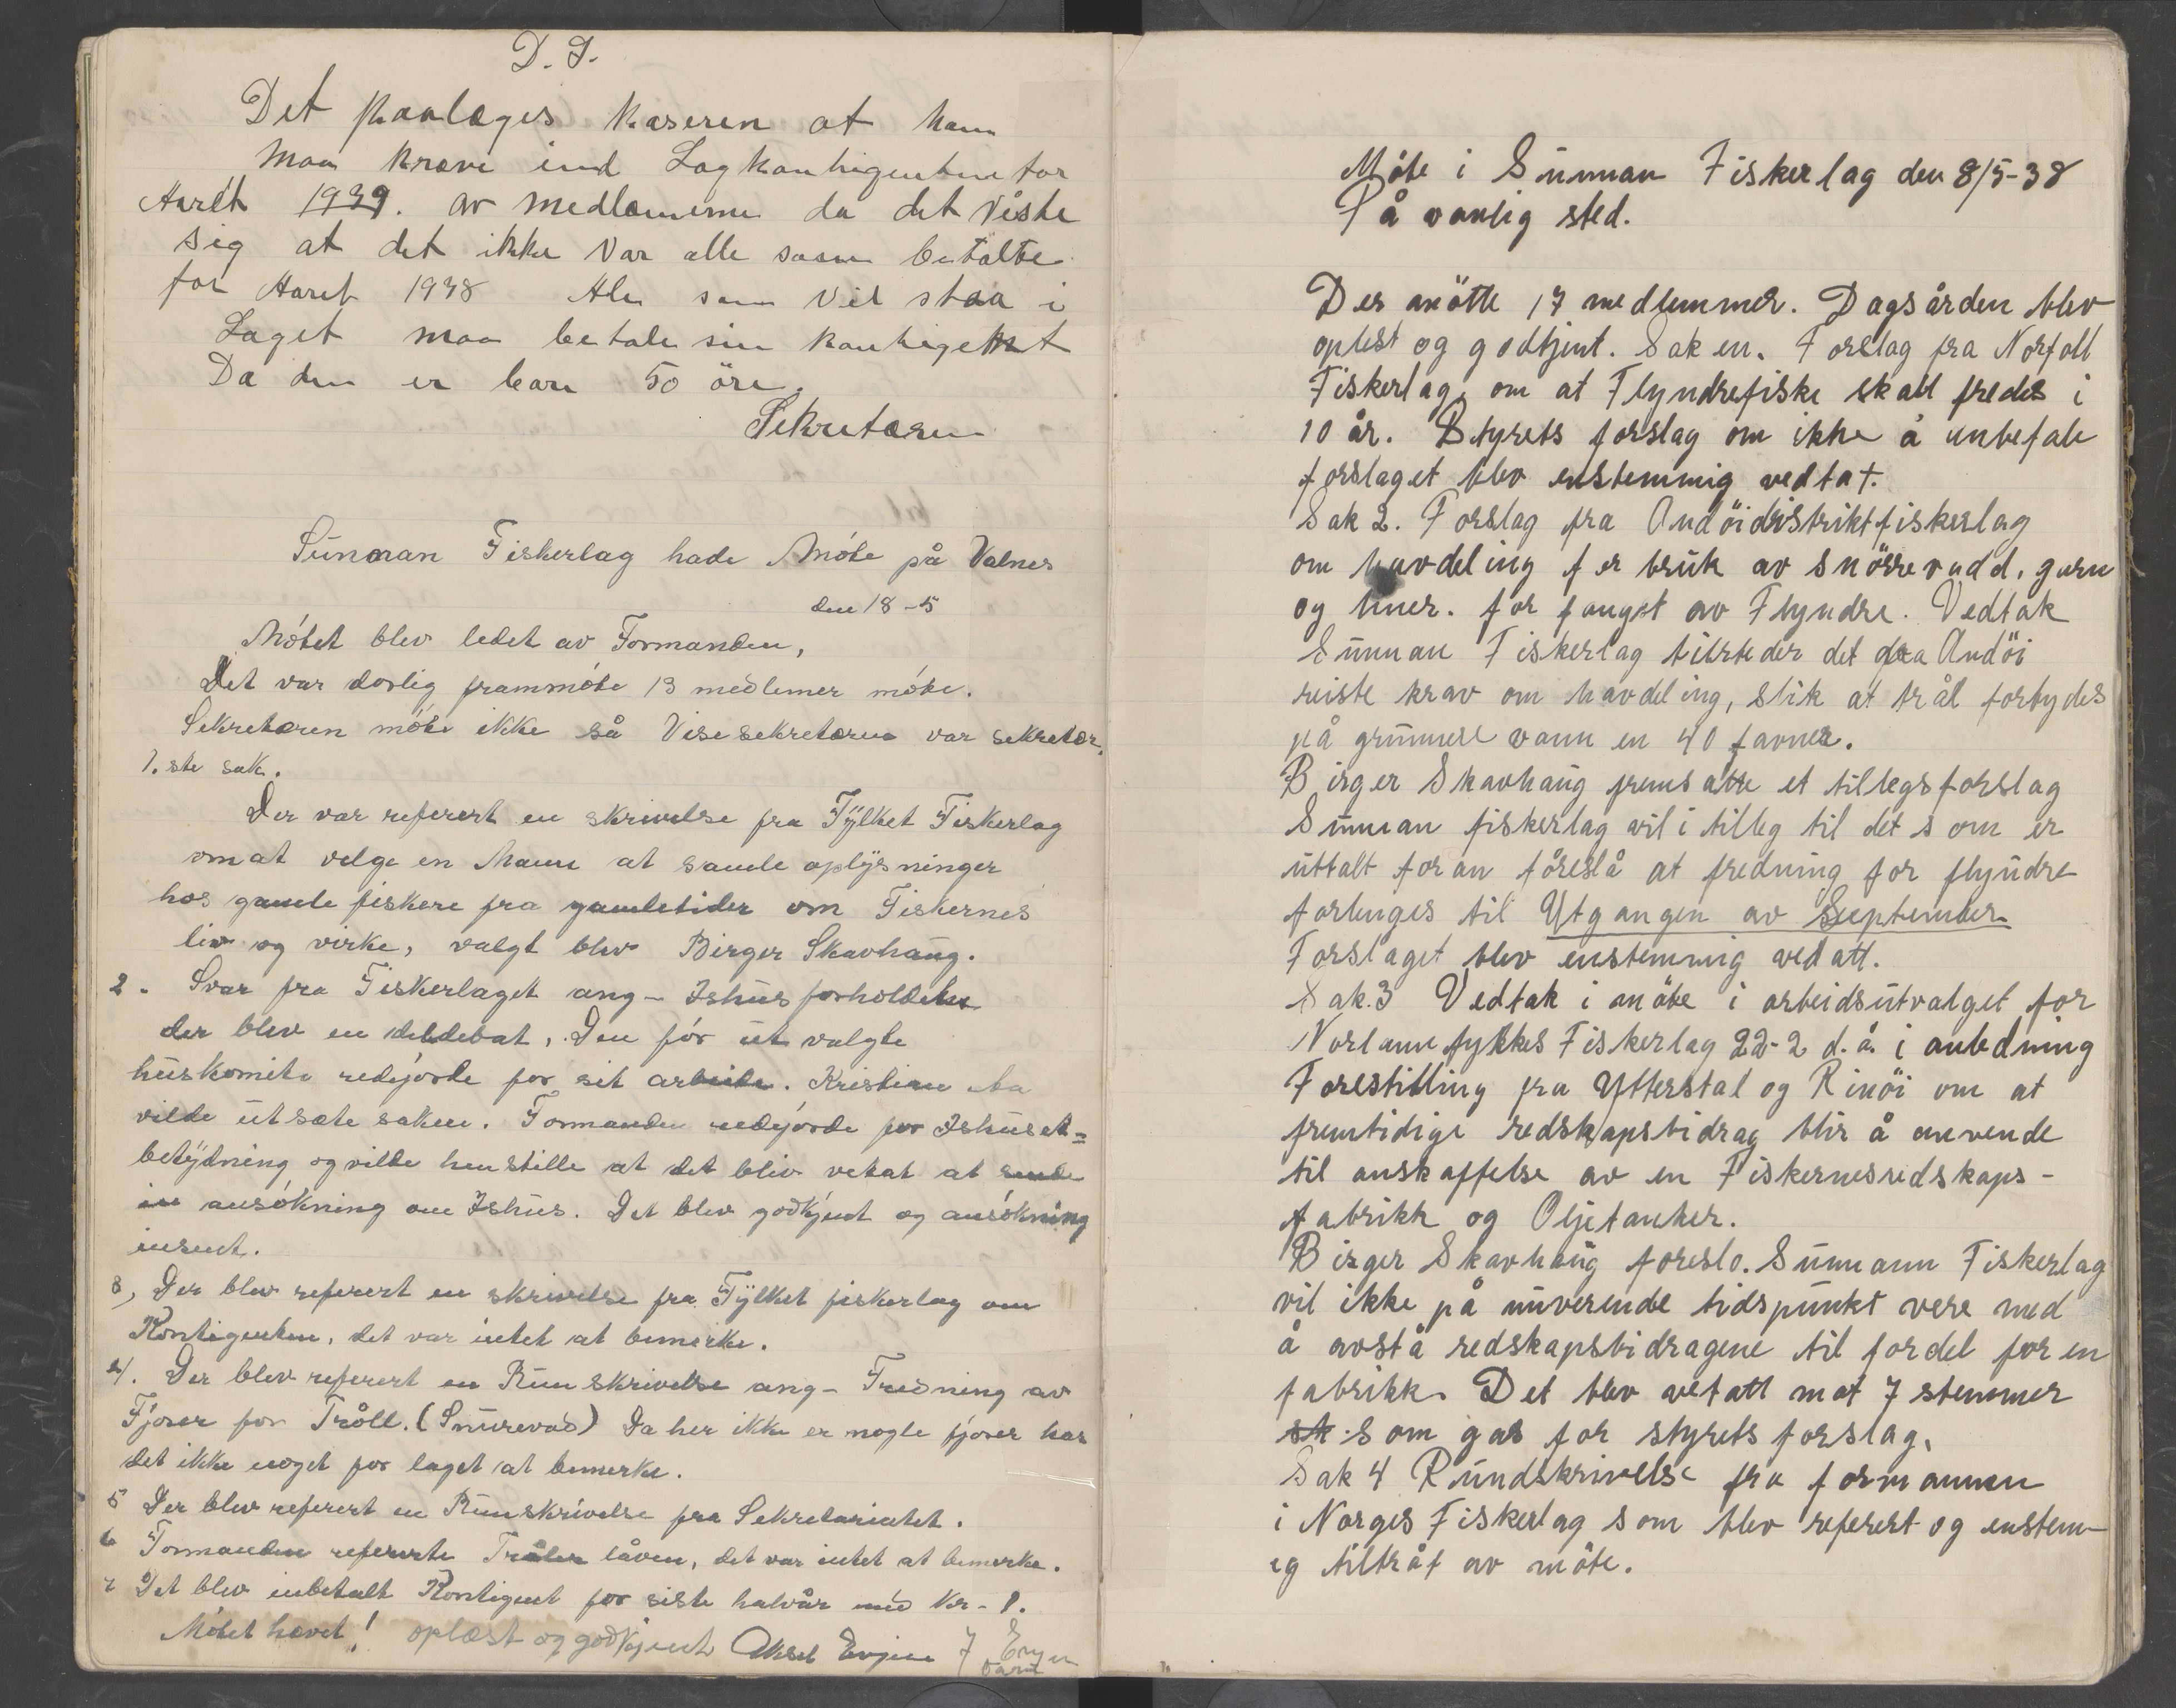 D. S.
Det paalæges Kaseren at han
maa kræve ind Lagkontigenten for
Aaret 1939. av medlemerne da det viste
sig at det ikke var alle som betalte
for Aaret 1938 Ale som vil staa i
Laget maa betale sin kontigent
Da den er bare 50 öre.
Sekretæren
Sunnan Fiskerlag hade Móte på Valnes
den 18-5
Mótet blev ledet av Formanden,
Det var dorlig frammóte 13 medlemer móte.
Sekretæren móte ikke så Visesekretæren var sekretær.
1. ste sak.
Der var referert en skrivelse fra Fylket Fiskerlag
om at velge en Mann at samle oplysninger
hos gamle fiskere fra gamletider om Fiskernes
liv og virke, valgt blev Birger Skavhaug.
2. Svar fra Fiskerlaget ang- Ishus forholdene
der blev en deldebat, Den fór ut valgte
huskomite redejórde for sit arbeide. Kristian
vilde utsæte saken. Formanden redejórde for Ishuset=
betydning og vilde henstille at det bliv vetat at sende
in ansókning om Ishus. Det blev godkjent og ansókning
insent.
3, Der blev referert en skrivelse fra Fylket fiskerlag om
Kontigenten, det var intet at bemerke.
4. Der blev referert en Runskrivelse ang- Fredning av
Fjorer for Tråll. (Snurevad) Da her ikke er nogle fjorer har
det ikke noget for laget at bemerke.
5 Der blev referert en Runskrivelse fra Sekretariatet.
6 Formanden refererte Tråler låven, det var intet at bemerke.
7 Det blev inbetalt Kontigent for siste halvår med Kr- 1.
Mótet hævet! oplæst og godkjent Aksel Evjen
Möte i Sunnan Fiskerlag den 8/5-38
På vanlig sted.
Der mötte 17 medlemmer. Dagsården blev
oplest og godtjent. Sak en. Forslag fra Norfoll
Fiskerlag, om at Flyndrefiske skall fredes i
10 år. Styrets forslag om ikke å anbefale
forslaget blev enstemmig vedtat.
Sak 2. Forslag fra Andöidistriktfiskerlag
om havdeling for bruk av snörrevadd, garn
og liner. for fangst av Flyndre. Vedtak
Sunnan Fiskerlag tilrteder det fra Andöi
reiste krav om havdeling, slik at trål forbydes
på grunnere vann en 40 favner.
Birger Skavhaug fremsatte et tillegsforslag
Sunnan fiskerlag vil i tilleg til det som er
uttalt foran föreslå at fredning for flyndre
forlenges til Utgangen av September
Forslaget blev enstemmig vedatt.
Sak.3 Vedtak i möte i arbeidsutvalget for
Norlann fylkes Fiskerlag 22-2 d.å. i anledning
Forestilling fra Ytterstal og Rinöi om at
fremtidige redskapsbidrag blir å anvende
til anskaffelse av en Fiskernesredskaps-
fabrikk og Oljetanker.
Birger Skavhaug foreslo. Sunnann Fiskerlag
vil ikke på nuverende tidspunkt vere med
å avstå redskapsbidragene til fordel for en
fabrikk. Det blev vetatt mot 7 stemmer
st som gas for styrets forslag.
Sak 4 Rundskrivelse fra formannen
i Norges Fiskerlag som blev referert og enstem-
ig tiltråt av möte.